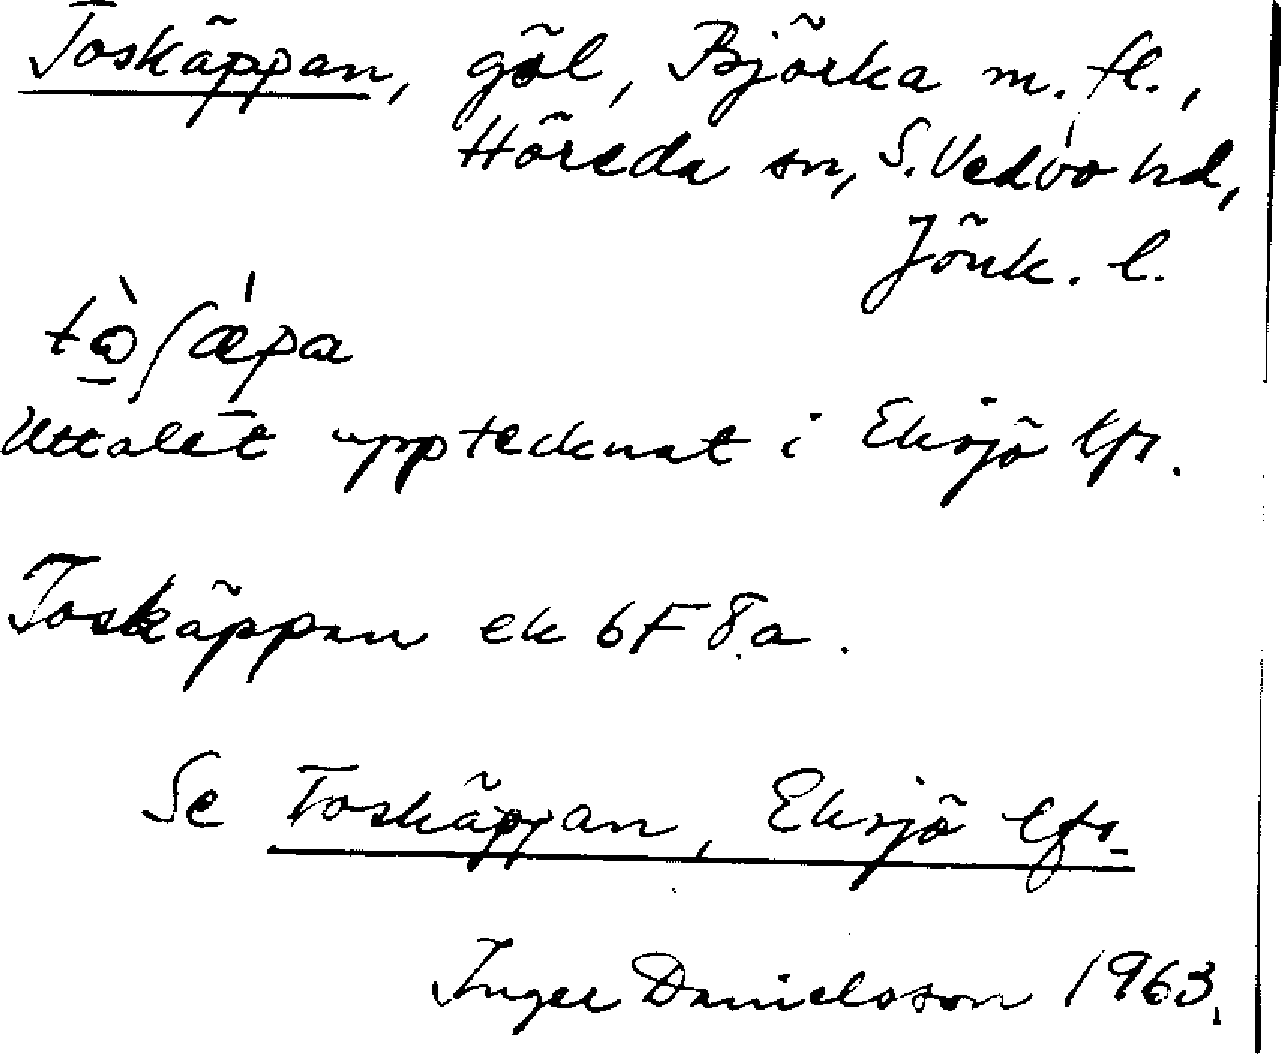 Toskäppan, göl, Björka m. fl.,
Höreda sn, S. Vedbo hd,
Jönk. l.
Uttalet upptecknat i Eksjö lfs.
Toskäppan ek 6F 8a.
Se Toskäppan, Eksjö lfs.
Inger Danielsson 1963.